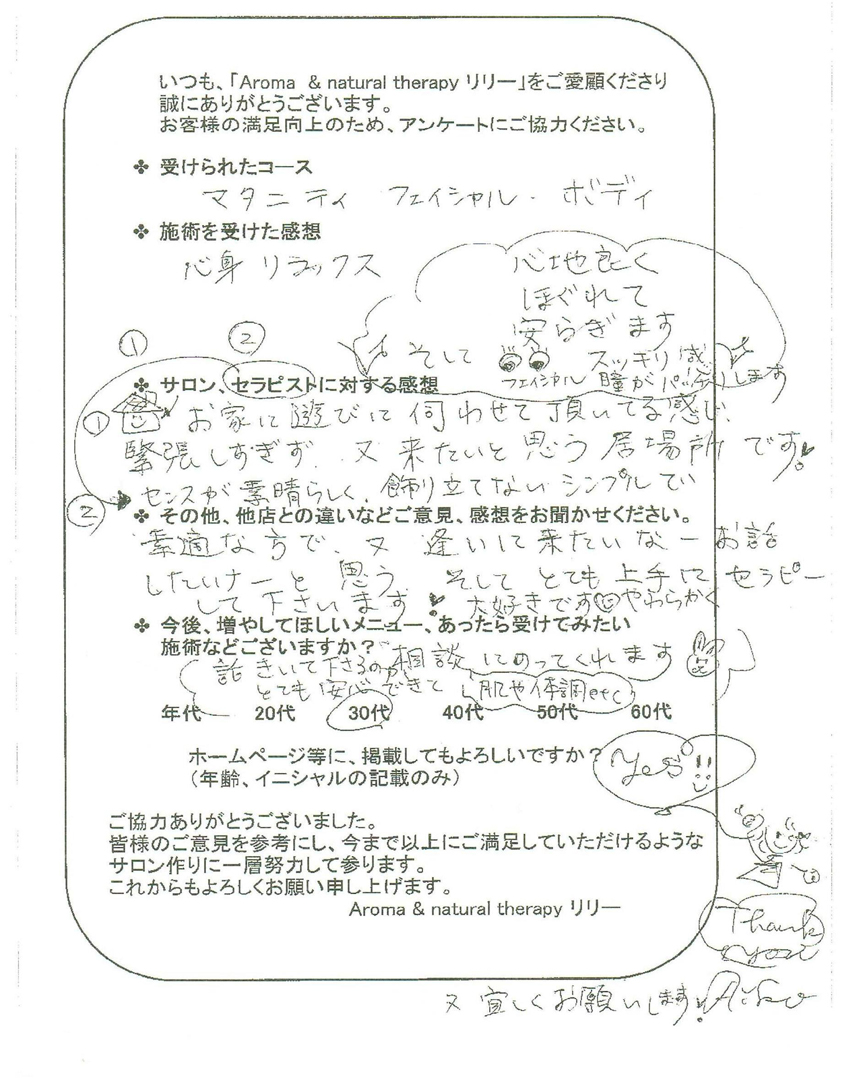 いつも、「Aroma & natural therapy リリー」をご愛顧くださり
誠にありがとうございます。
お客様の満足向上のため、アンケートにご協力ください。
❖ 受けられたコース
マタニティ フェイシャル・ボディ
❖ 施術を受けた感想
心身リラックス
心地良く
ほぐれて
安らぎます
そして スッキリ感
フェイシャル 瞳がパッチリします
① ②
❖ サロン、セラピストに対する感想
① お家に遊びに伺わせて頂いてる感じ、
緊張しすぎず、又来たいと思う居場所です!
センスが素晴らしく、飾り立てないシンプルでい
②
❖ その他、他店との違いなどご意見、感想をお聞かせください。
素適な方で、又逢いに来たいなーお話
したいナーと思う そして とても上手にセラピー
して下さいます! 大好きです やわらかく
❖ 今後、増やしてほしいメニュー、あったら受けてみたい
施術などございますか?
話きいて下さるのが 相談にのってくれます
とても安心できて 肌や体調etc
年代 20代 30代 40代 50代 60代
ホームページ等に、掲載してもよろしいですか?
(年齢、イニシャルの記載のみ)
Yes
ご協力ありがとうございました。
皆様のご意見を参考にし、今まで以上にご満足していただけるような
サロン作りに一層努力して参ります。
これからもよろしくお願い申し上げます。
Aroma & natural therapy リリー
Thank
you
又宜しくお願いします! Aiko